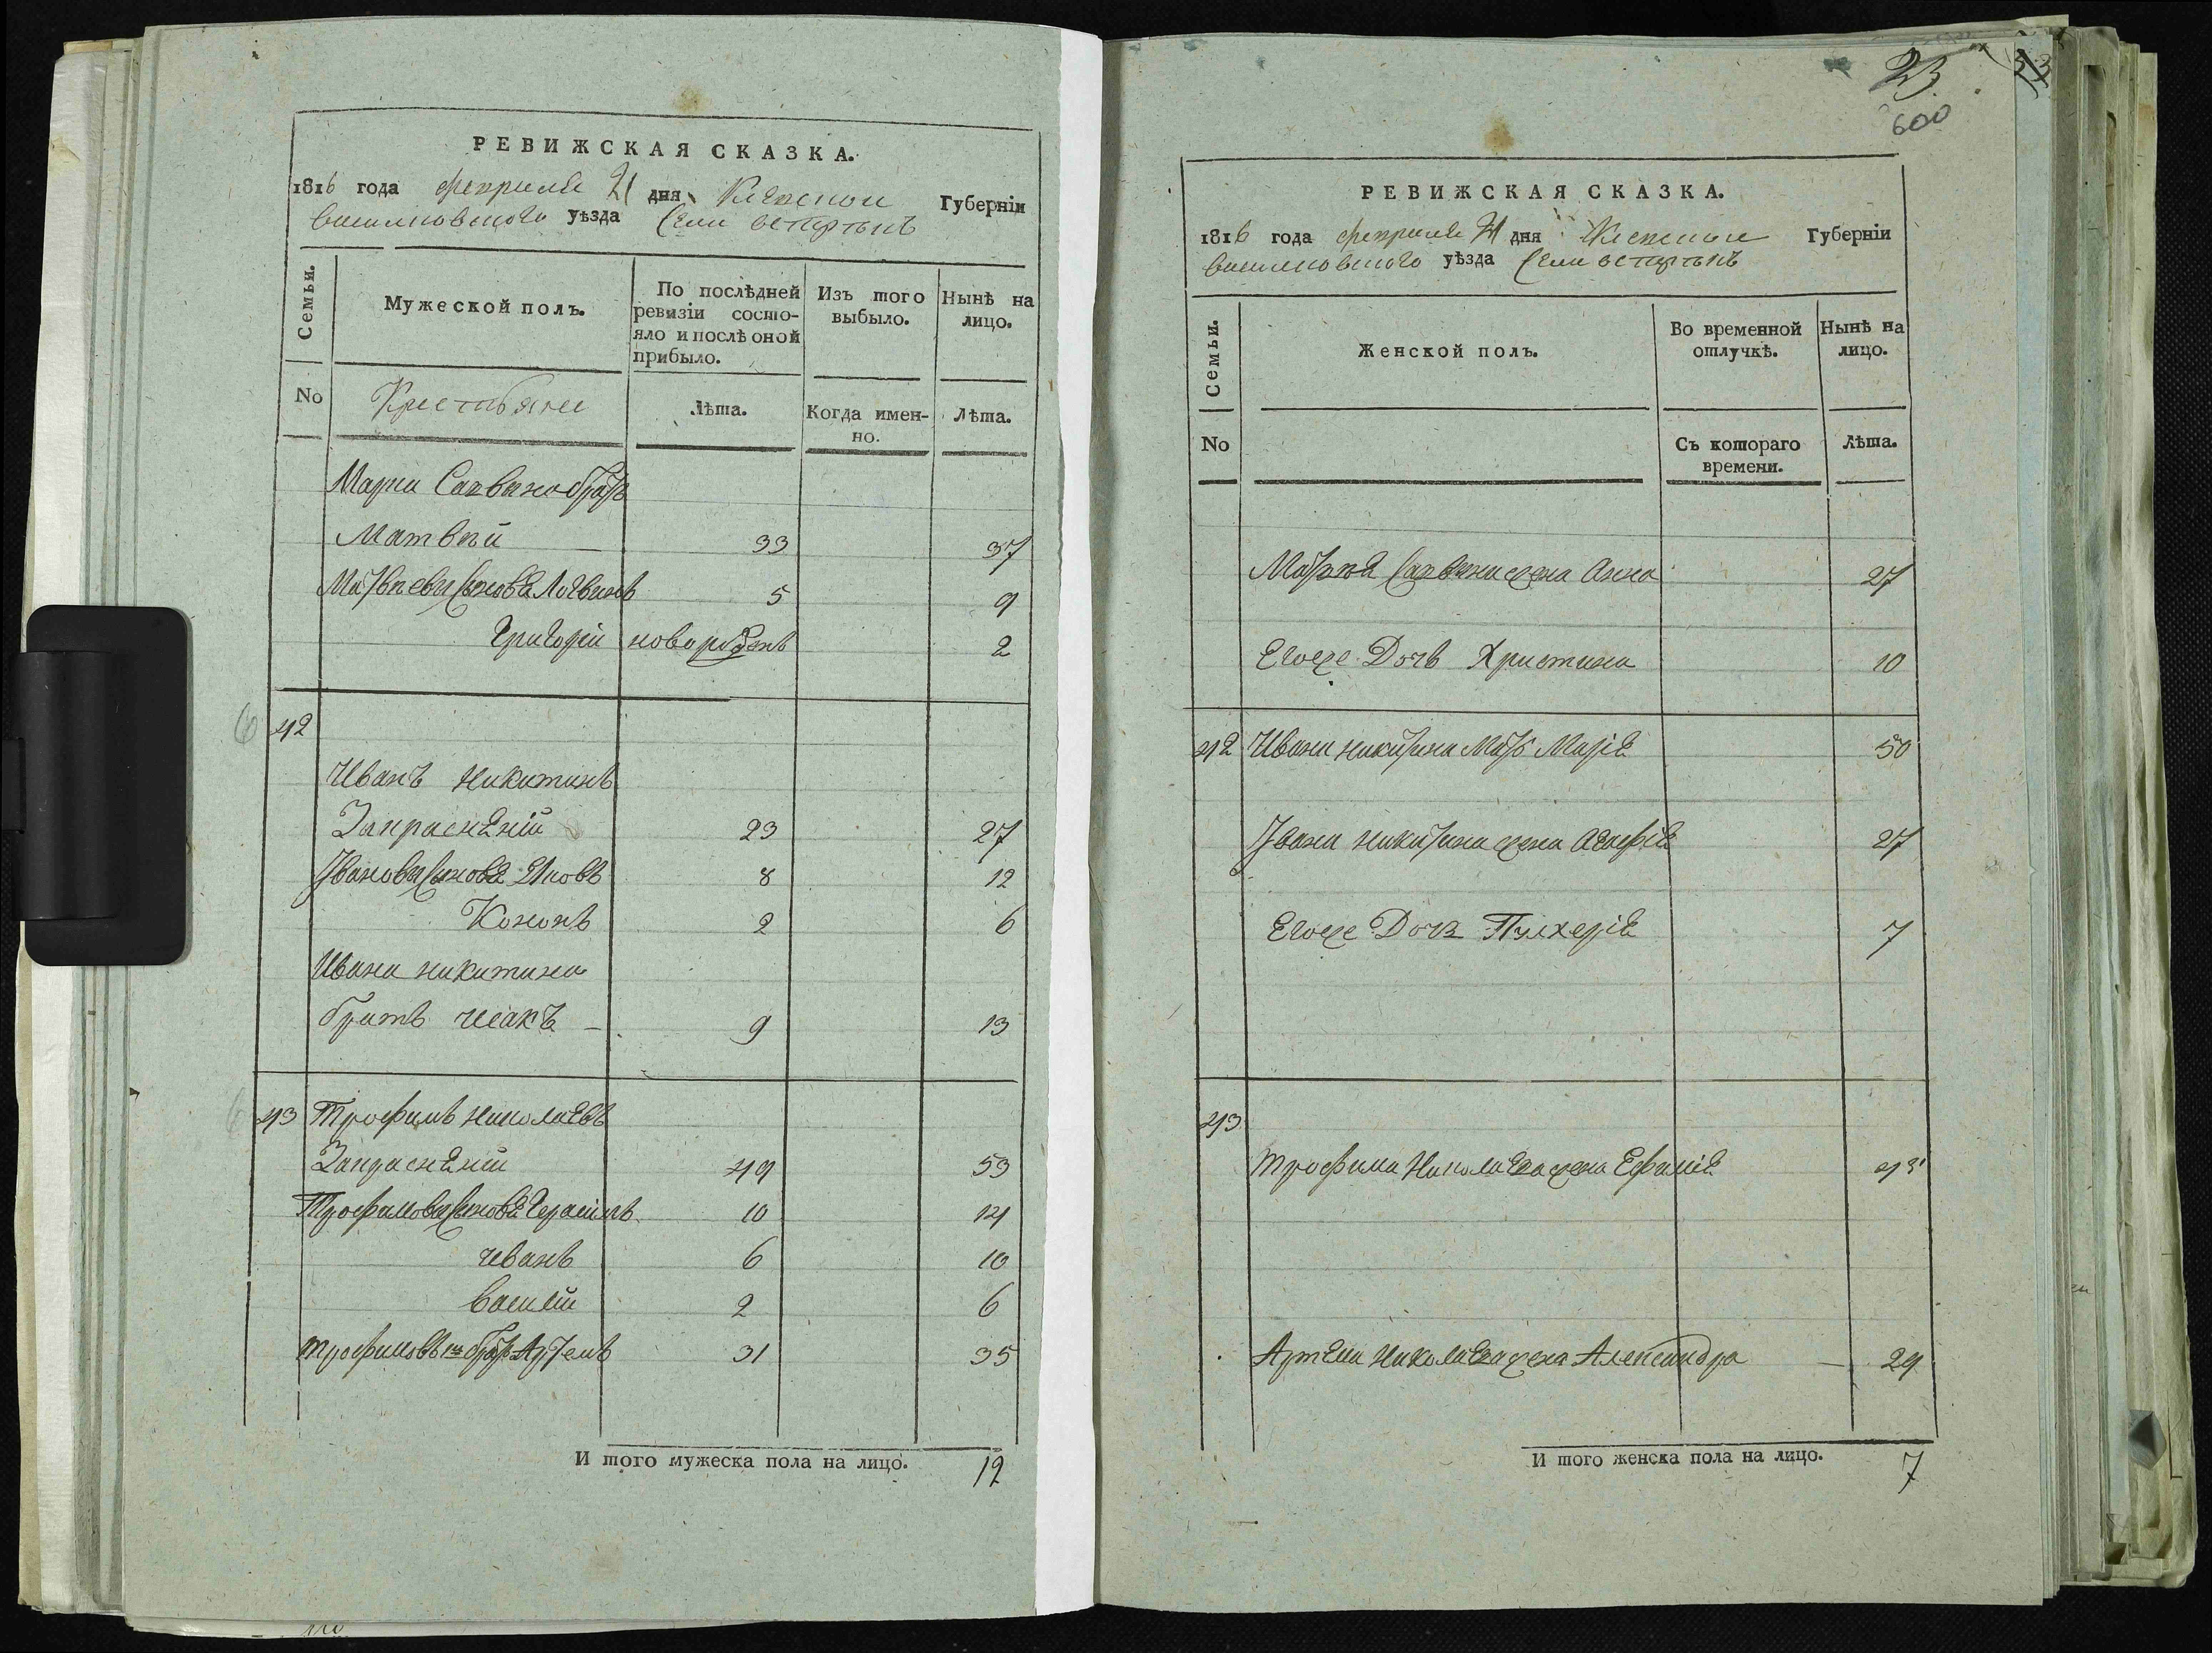 РЕВИЖСКАЯ СКАЗКА.
1816 года февраля 21 дня Киевской Губерніи
василковского уѣзда Села острыѣкъ
Семьи.
Мужеской полъ.
По послѣдней ревизіи состояло и послѣ оной прибыло.
Изъ того выбыло.
Нынѣ на лицо.
No
Крестьяне
Лѣта.
Когда именно.
Лѣта.
Марка Саввина братъ
Матвѣй 33 37
Матвѣевы сыновья Логвинъ 5 9
Григорій новорожденъ 2
42
Иванъ Никитинъ
Запрасный 23 27
Ивановы сыновья Яковъ 8 12
Кононъ 2 6
Ивана никитина
братъ исакъ 9 13
43 Трофимъ Николаевъ
49 53
Трофимовы сыновья Герасимъ 10 14
иванъ 6 10
василій 2 6
трофимовъ братъ Артемъ 31 35
И того мужеска пола на лицо. 12
23
33
600
РЕВИЖСКАЯ СКАЗКА.
1816 года февраля 21 дня Киевской Губерніи
василковского уѣзда Села
Семьи.
Женской полъ.
Во временной отлучкѣ.
Нынѣ на лицо.
No
Съ котораго времени.
Лѣта.
Матвѣя Саввина жена Анна 27
Егоже Дочь Христина 10
42 Ивана никитина Мать Марія 50
Ивана никитина жена Агафія 27
Егоже Дочь Пулхерія 7
43
трофима Николаева жена Ефимія 43
Артема Николаева жена Александра 29
И того женска пола на лицо. 7